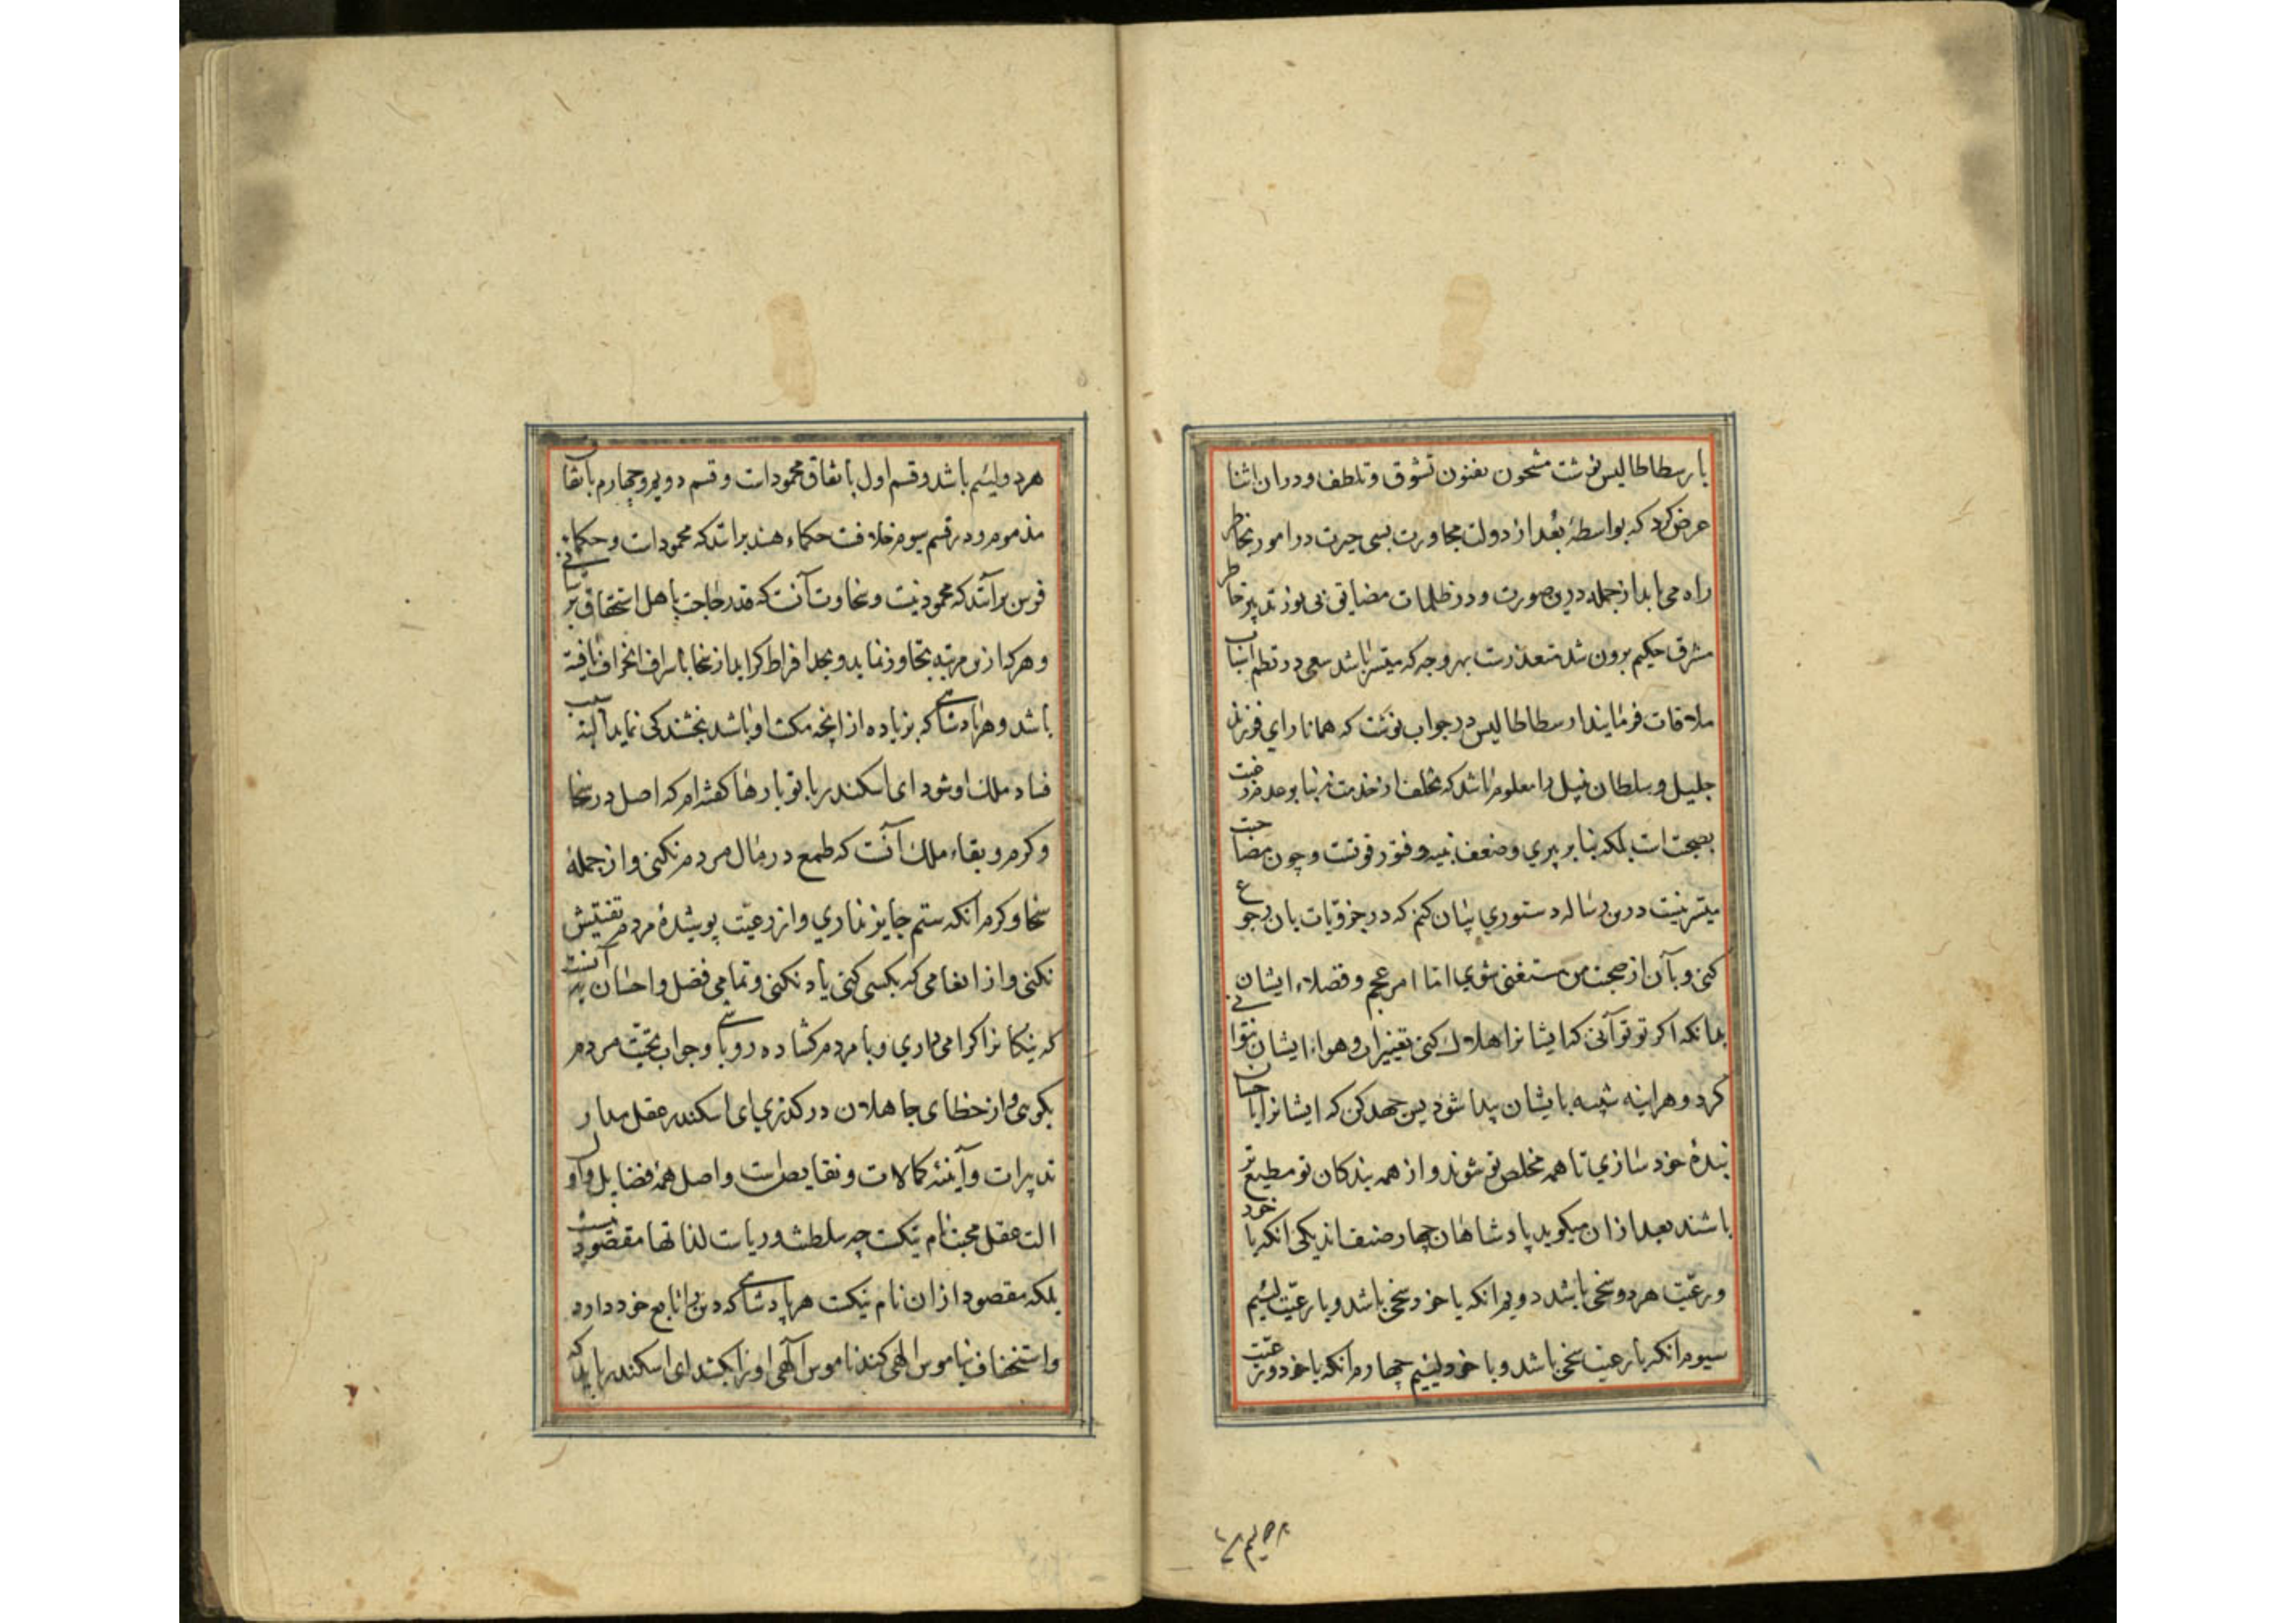 بارسطاطالیس نوشت مشحون بفنون تشوق و تلطف و در ان اثنا
عرض کرد که بواسطهٔ بعد از دولت مجاورت بسی حیرت در امور بخاطر
راه می یابد از جمله درین صورت و در ظلمات مضایق بی نور تدبیر خاطر
مشرق حکیم برون شد متعذرست بهر وجه که میسر باشد سعی در نظم اسباب
ملاقات فرمایند ارسطاطالیس در جواب نوشت که همانا رای فرزند
جلیل و سلطان نبیل را معلوم باشد که تخلف از خدمت نه بنابر عدم رغبت
بصحبت است بلکه بنا بر پیری و ضعف بنیه و فتور قوتست و چون مصاحبت
میسر نیست درین رساله دستوری بیان کنم که در جزویات بان رجوع
کنی و بآن از صحبت من مستغنی شوی اما امر عجم و فضلاء ایشان
بدانکه اکر تو توانی که ایشانرا هلاک کنی تغییر اب و هواء ایشان نتوانی
کرد و هر اینه شبیه بایشان پیدا شود پس جهد کن که ایشانرا باحسان
بندهٔ خود سازی تا همه مخلص تو شوند و از همه بندکان تو مطیع تر
باشند بعد از ان میکوید پادشاهان چهار صنف اند یکی انکه با خود
و رعیت هر دو سخی باشد دویم انکه با خود سخی باشد و با رعیت لئیم
سیوم انکه با رعیت سخی باشد و با خود لئیم چهارم انکه با خود و رعیت
هر دو لئیم باشد و قسم اول باتفاق محمودات و قسم دویم و چهارم باتفاق
مذموم و در قسم سیوم خلافت حکماء هند برانند که محمودات و حکماء
فرس برآنند که محمود نیست و سخاوت آنست که بقدر حاجت باهل استحقاق برسانی
و هر که ازین مرتبه تجاوز نماید و بحد افراط کراید از سخا باسراف انحراف یافته
باشد و هر پادشاهی که بزیاده از انچه مکنت او باشد بخشندکی نماید البته سبب
فساد ملک او شود ای اسکندر با تو بارها کفته ام که اصل در سخا
و کرم و بقاء ملک آنست که طمع در مال مردم نکنی و از جملهٔ
سخا و کرم انکه ستم جایز نداری و از رعیت پوشیدهٔ مردم تفتیش
نکنی و از انعامی که بکسی کنی یاد نکنی و تمامی فضل و احسان به آنست
که نیکانرا کرامی داری و با مردم کشاده رو باشی و جواب تحیت مردم
بکویی و از خطای جاهلان درکذری ای اسکندر عقل مدار
تدبیرات و آینهٔ کمالات و نقایص است و اصل همه فضایل و اول
الت عقل محبت نام نیکست چه سلطنت و ریاست لذاتها مقصود نیست
بلکه مقصود از ان نام نیکست هر پادشاهی که دین را تابع خود دارد
و استخفاف بناموس الهی کند ناموس آلهی او را بکشد ای اسکندر باید که